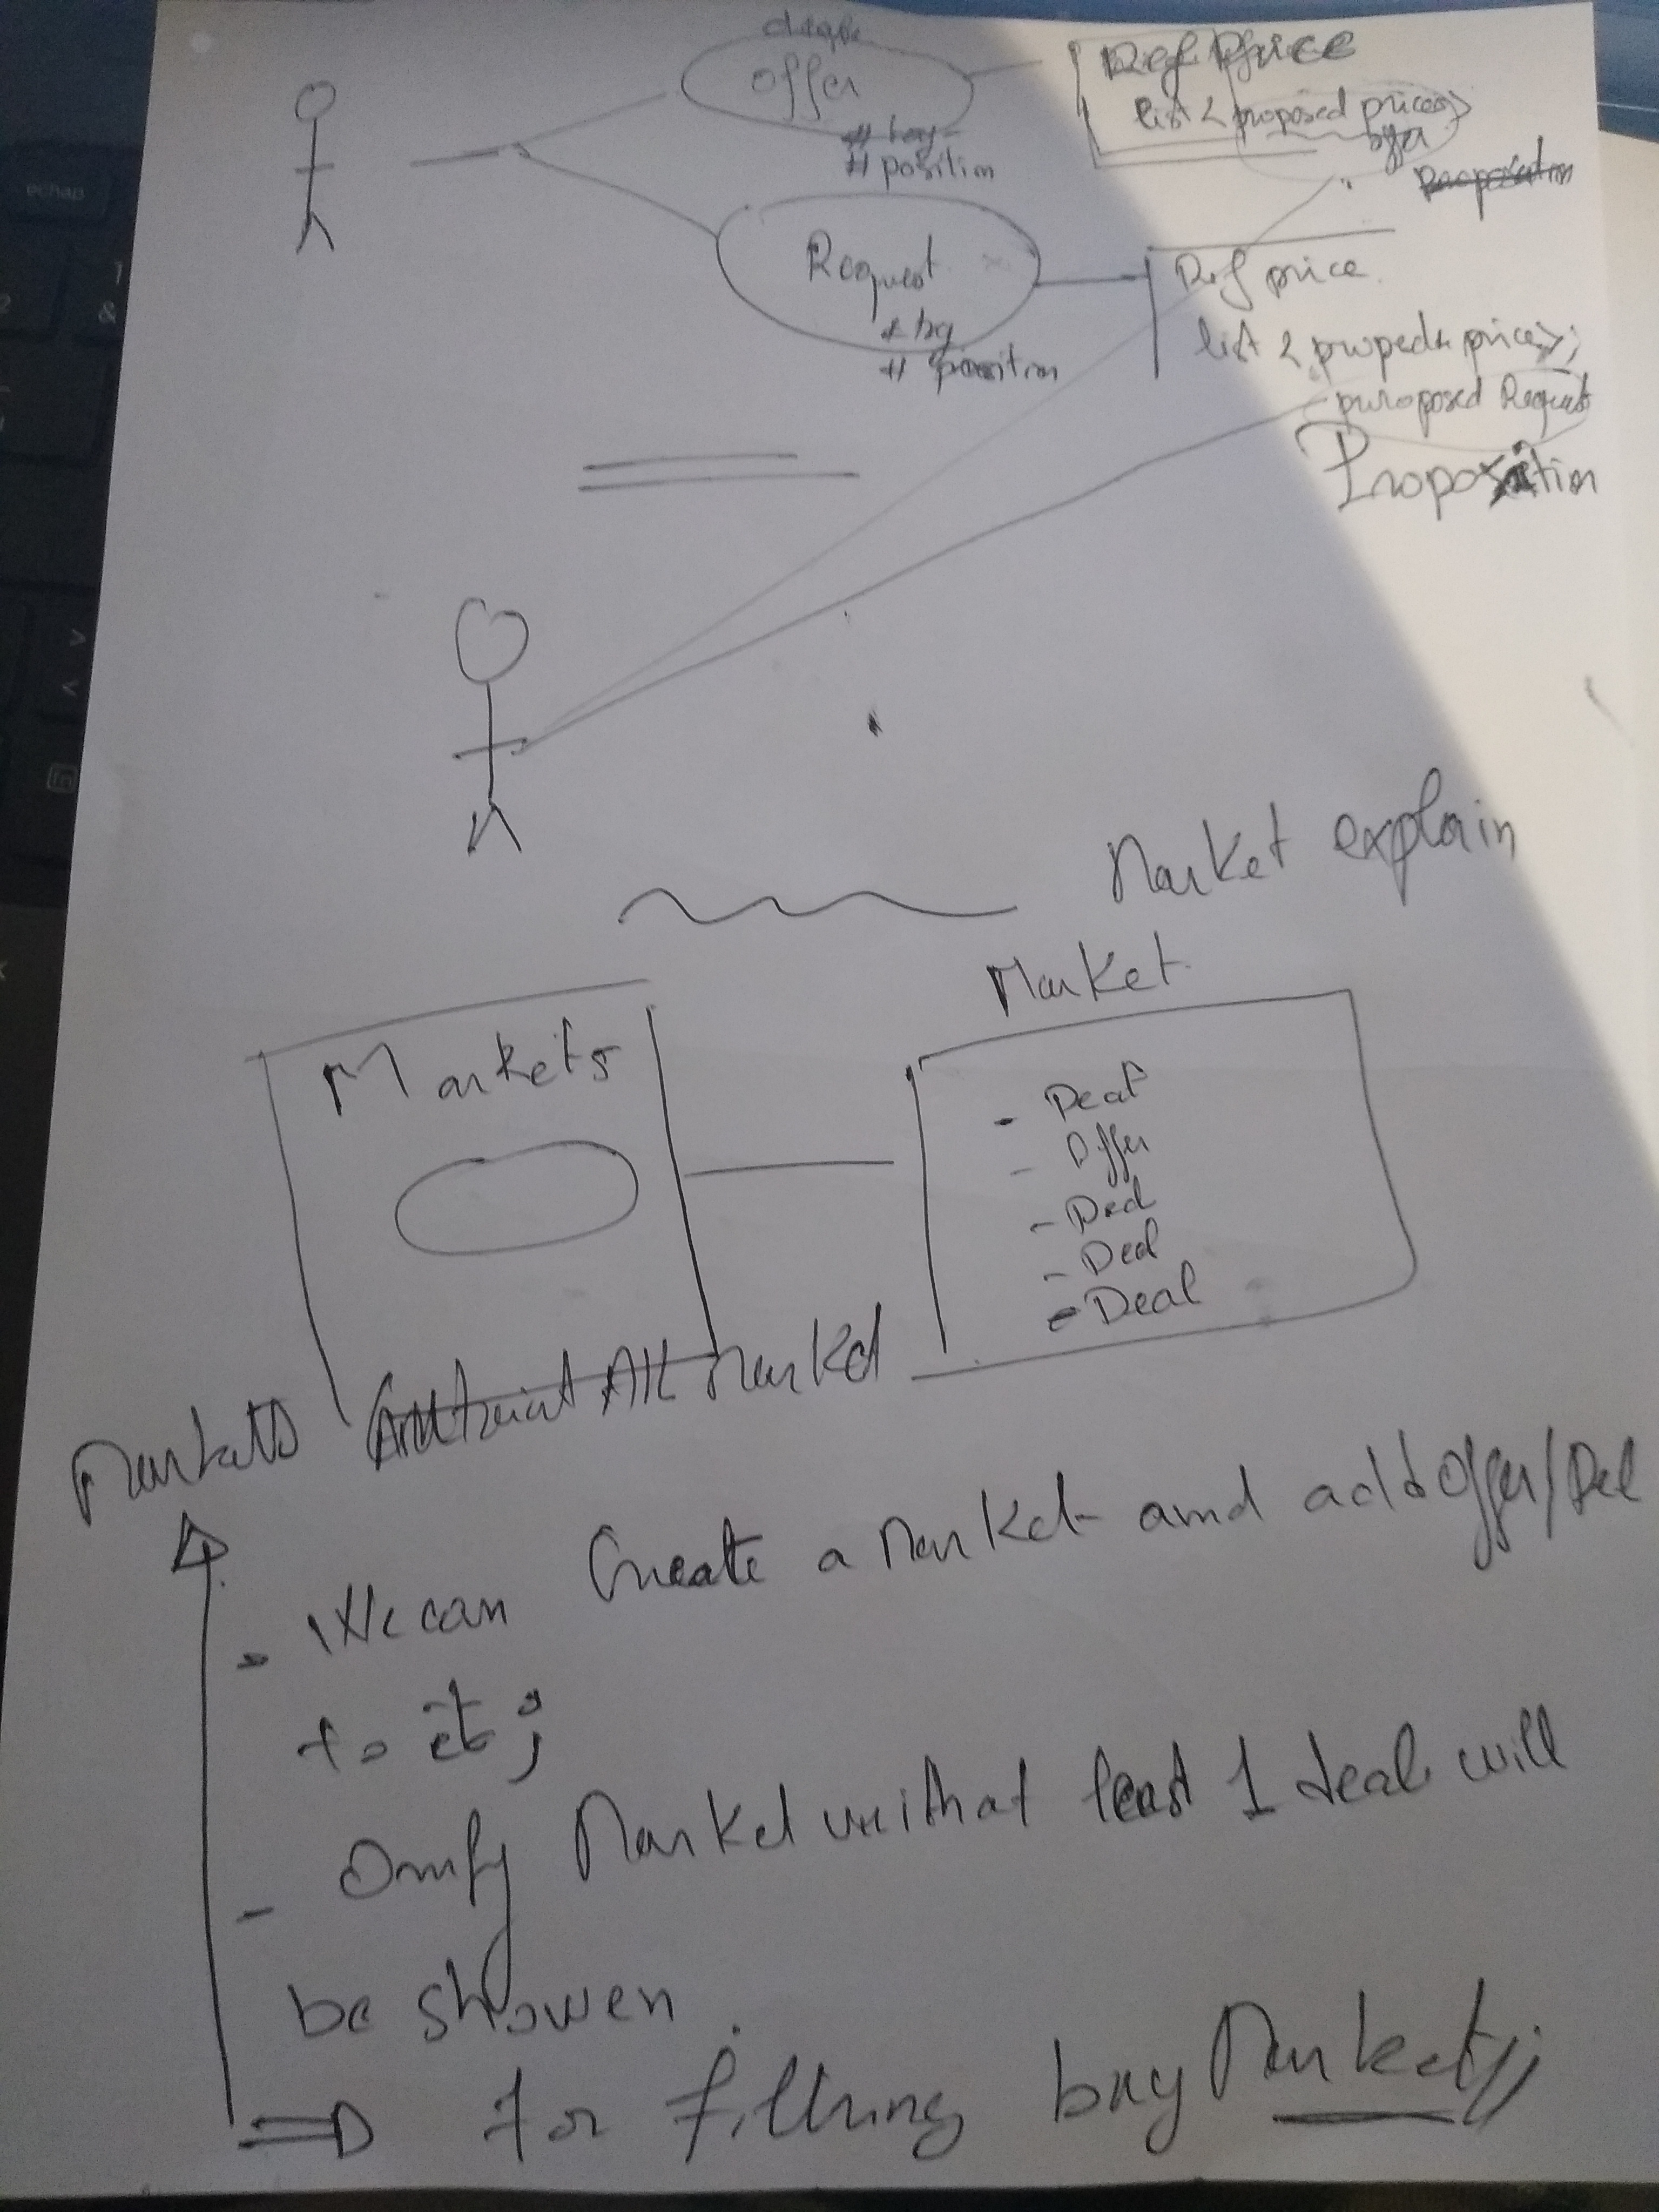 offer
# position
Ref Price
list < proposed prices>
Request
# position
Ref price
list < proposed prices>;
proposed Request
Proposition
Market explain
Market
Markets
- Deal
- Offer
- Deal
- Deal
- Deal
Markets All Market
- We can Create a Market and add Offer/Deal
to it ;
- Only Market with at least 1 deal will
be showen
=> for filtring buy Market;
echap
fn